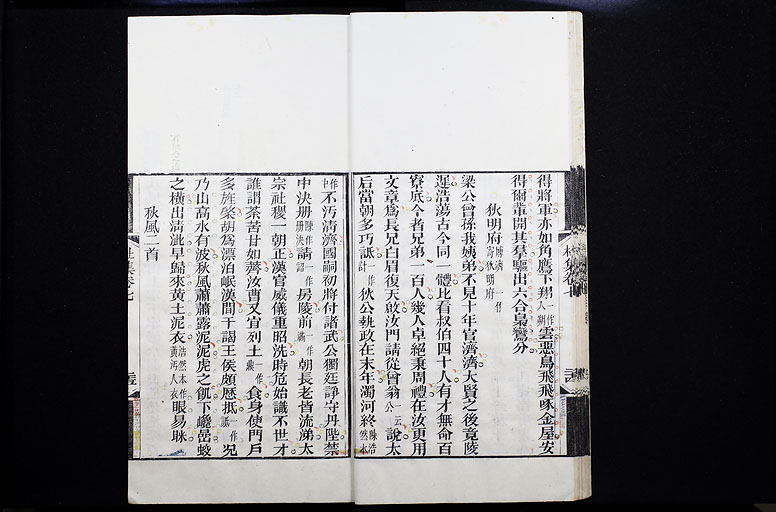 得將軍亦如角鷹下翔一作人朔雲惡鳥飛飛啄金屋安
得爾輩開其羣驅出六合梟鸞分
狄明府博濟一作寄狄明府
梁公曾孫我姨弟不見十年官濟濟大賢之後竟陵
遲浩蕩古今同一體比看叔伯四十人有才無命百
寮底今者兄弟一百人幾人卓絕秉周禮在汝更用
文章爲長兄白眉復天啟汝門請從曾翁一云公說太
后當朝多巧詆一作計狄公執政在末年濁河終陳浩然本
作中不污淸濟國嗣初將付諸武公獨廷諍守丹陛禁
中決册陳作册決請一作詔房陵前一作滿朝長老皆流涕太
宗社稷一朝正漢官威儀重昭洗時危始識不世才
誰謂荼苦甘如薺汝曹又宜列土一作鼎食身使門戶
多旌棨胡爲漂泊岷漢間干謁王侯頗歷抵一作詆况
乃山高水有波秋風蕭蕭露泥泥虎之飢下巉嵒蛟
之橫出淸泚早歸來黃土泥衣浩然本作黃污人衣眼易眯
秋風二首
杜集卷七